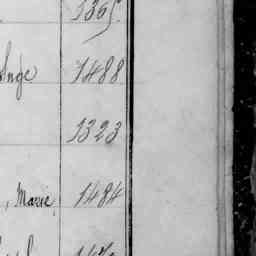 1365.
Ange 1488
1323
, Marie, 1484